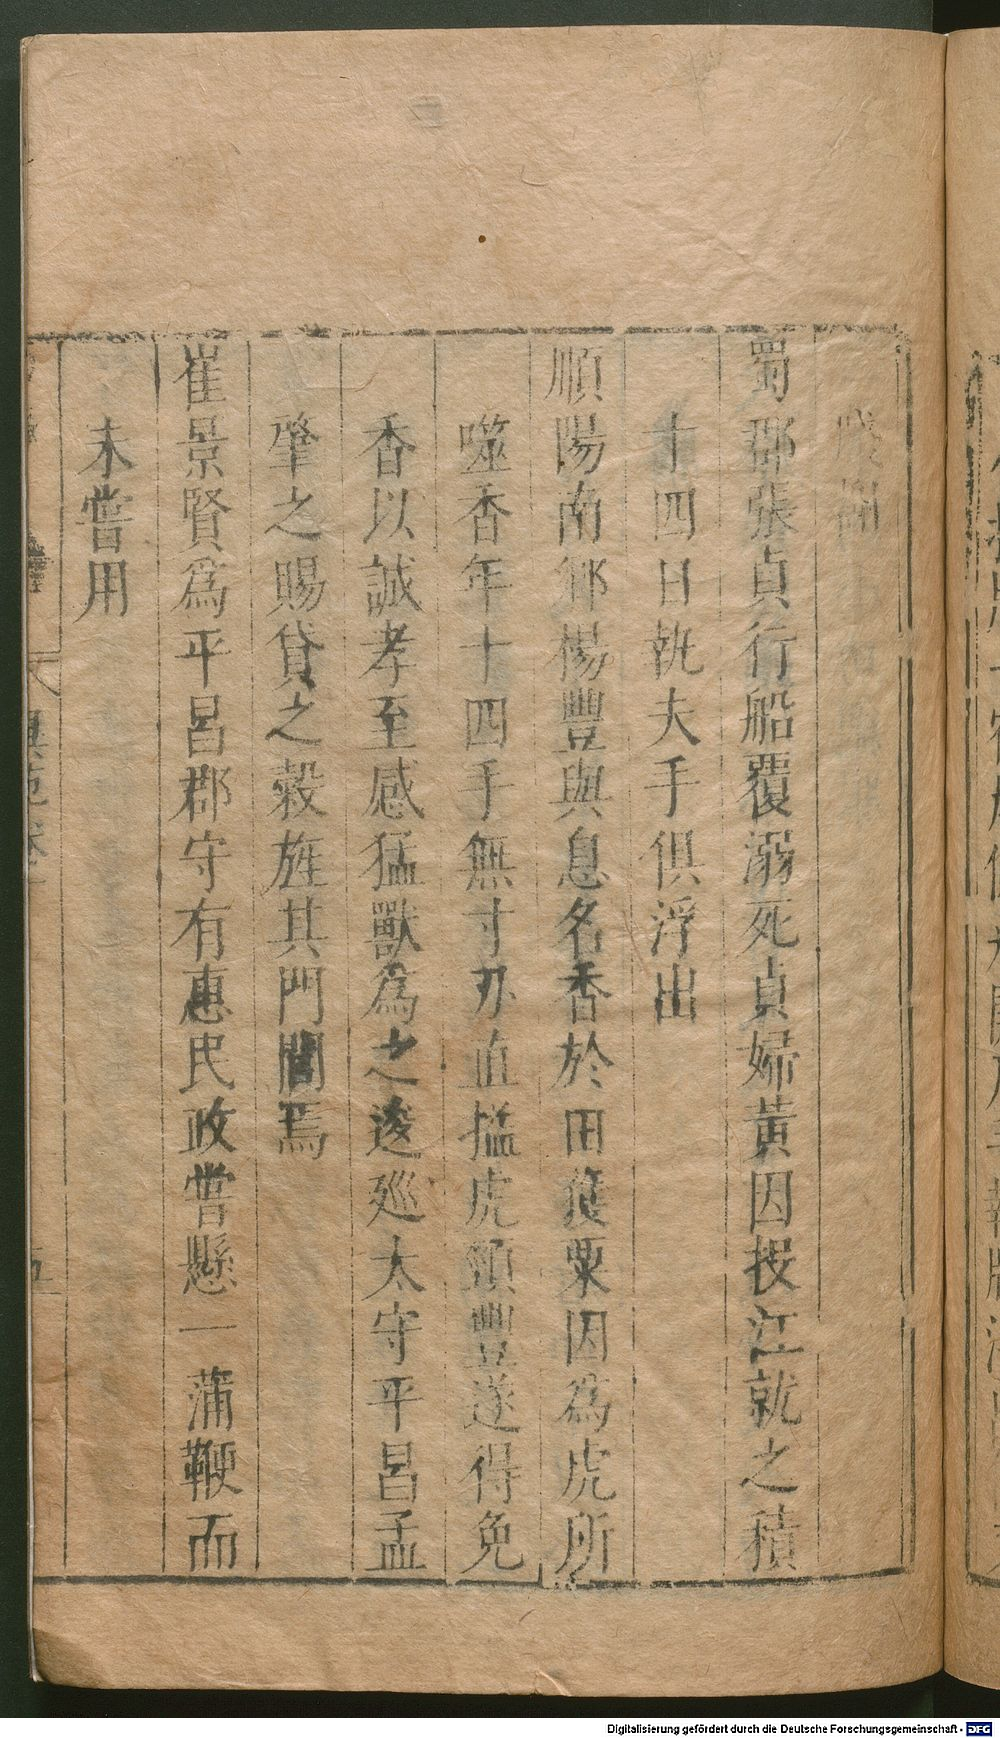 蜀郡張貞行船覆溺死貞婦黃因投江就之積
十四日執夫手俱浮出
順陽南鄉楊豐與息名香於田穫粟因為虎所
噬香年十四手無寸刃直搤虎頸豐遂得免
香以誠孝至感猛獸為之逡廵太守平昌孟
肇之賜貸之穀旌其門閭焉
崔景賢為平昌郡守有惠民政嘗懸一蒲鞭而
未嘗用
異苑卷十
五
Digitalisierung gefördert durch die Deutsche Forschungsgemeinschaft - DFG